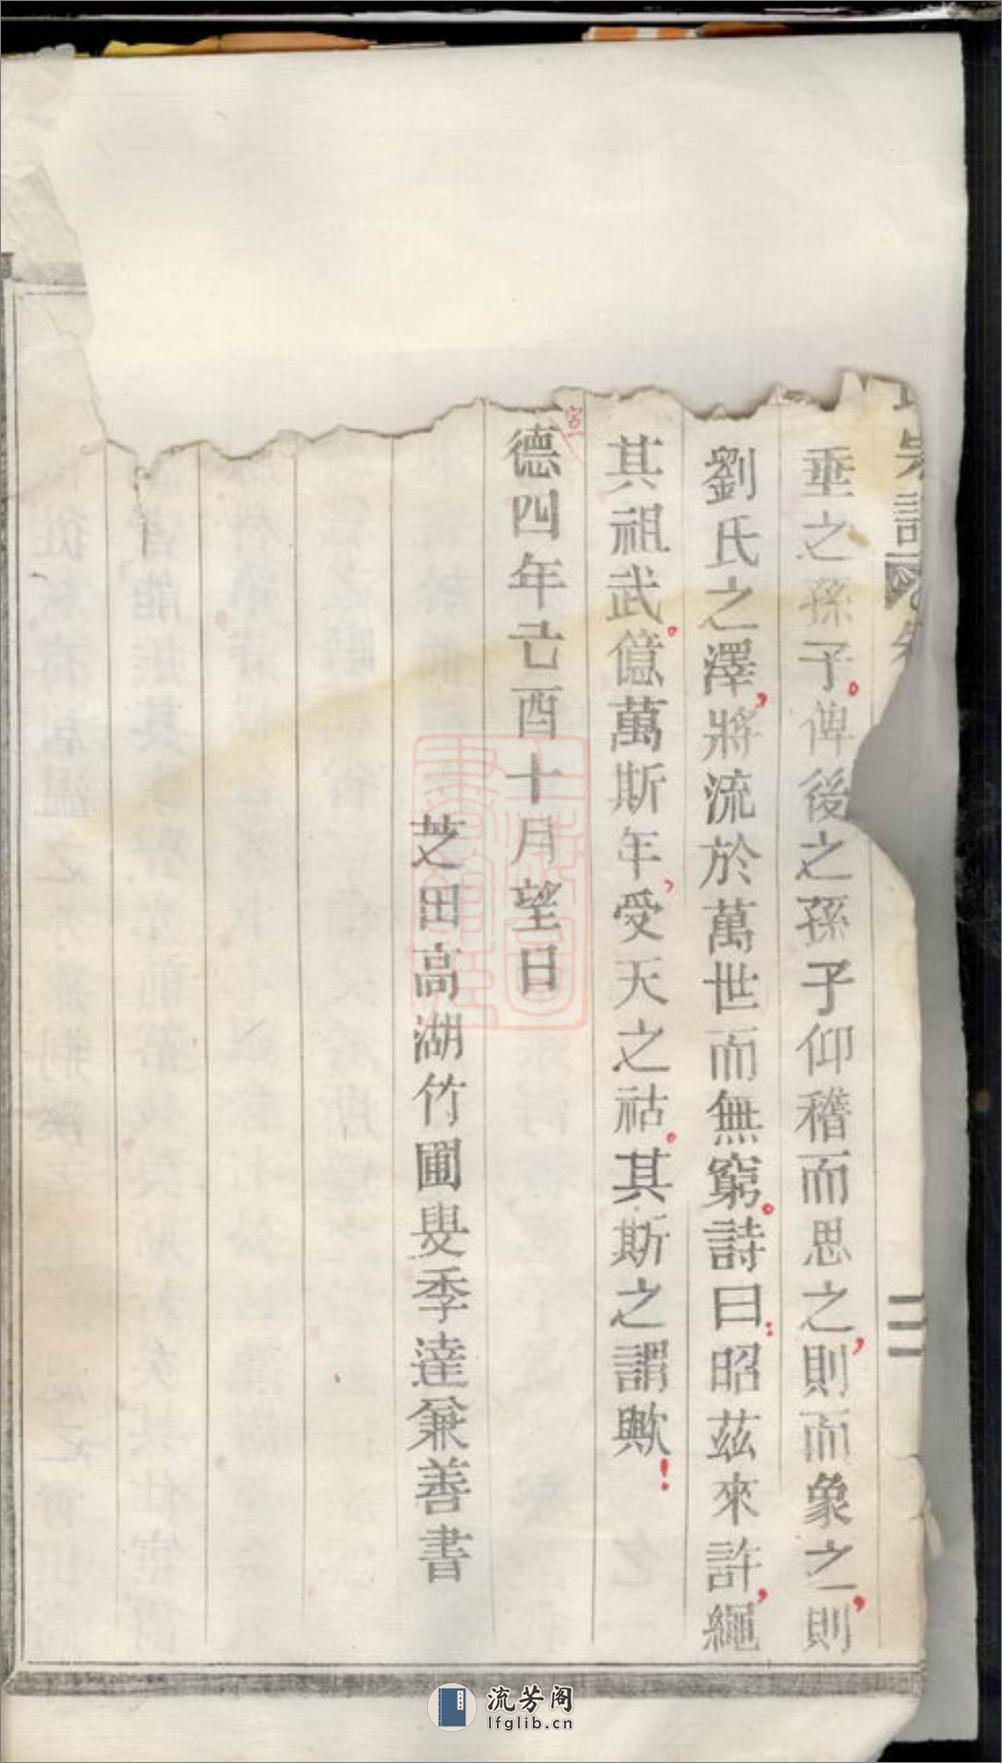 氏宗譜
垂之孫子。俾後之孫子仰稽而思之，則而象之，則
劉氏之澤，將流於萬世而無窮。詩曰：昭茲來許，繩
其祖武。億萬斯年，受天之祜。其斯之謂歟！
宣
德四年己酉十月望日
芝田高湖竹圃叟季達兼善書
二
流芳阁
lfglib.cn